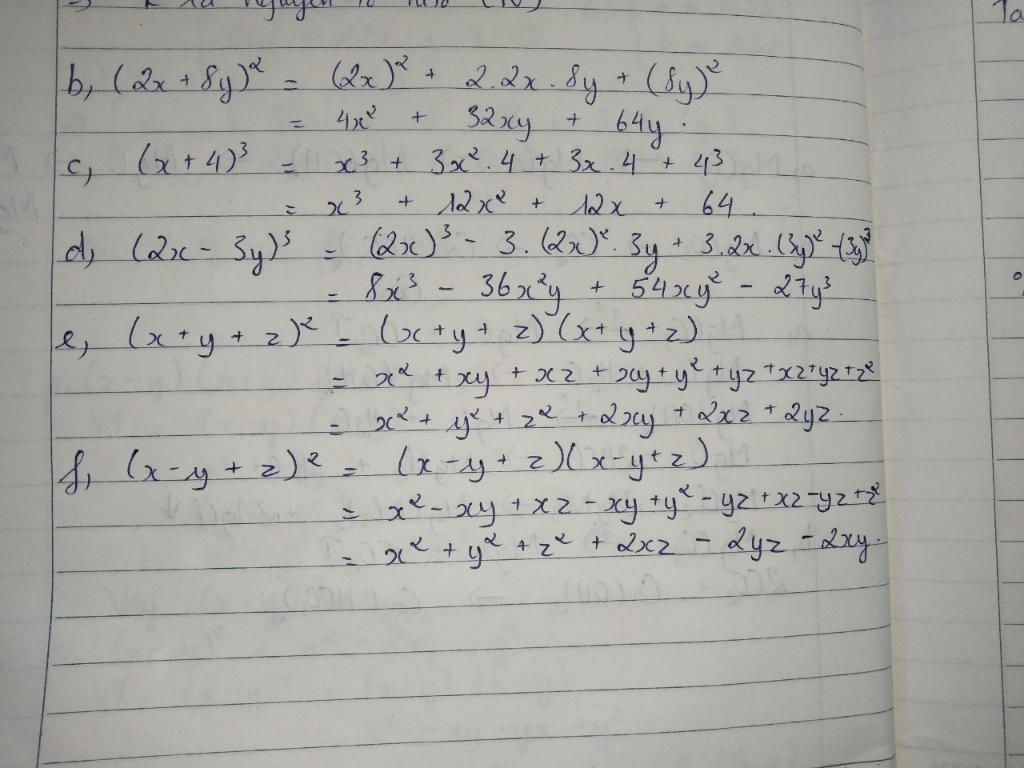 b, (2x + 8y)² = (2x)² + 2.2x . 8y + (8y)²
= 4x² + 32xy + 64y .
c, (x + 4)³ = x³ + 3x² . 4 + 3x . 4 + 4³
= x³ + 12x² + 12x + 64 .
d, (2x - 3y)³ = (2x)³ - 3 . (2x)² . 3y + 3.2x . (3y)² - (3y)³
= 8x³ - 36x²y + 54xy² - 27y³
e, (x + y + z)² = (x + y + z) (x + y + z)
= x² + xy + xz + xy + y² + yz + xz + yz + z²
= x² + y² + z² + 2xy + 2xz + 2yz .
f, (x - y + z)² = (x - y + z)(x - y + z)
= x² - xy + xz - xy + y² - yz + xz - yz + z²
= x² + y² + z² + 2xz - 2yz - 2xy .